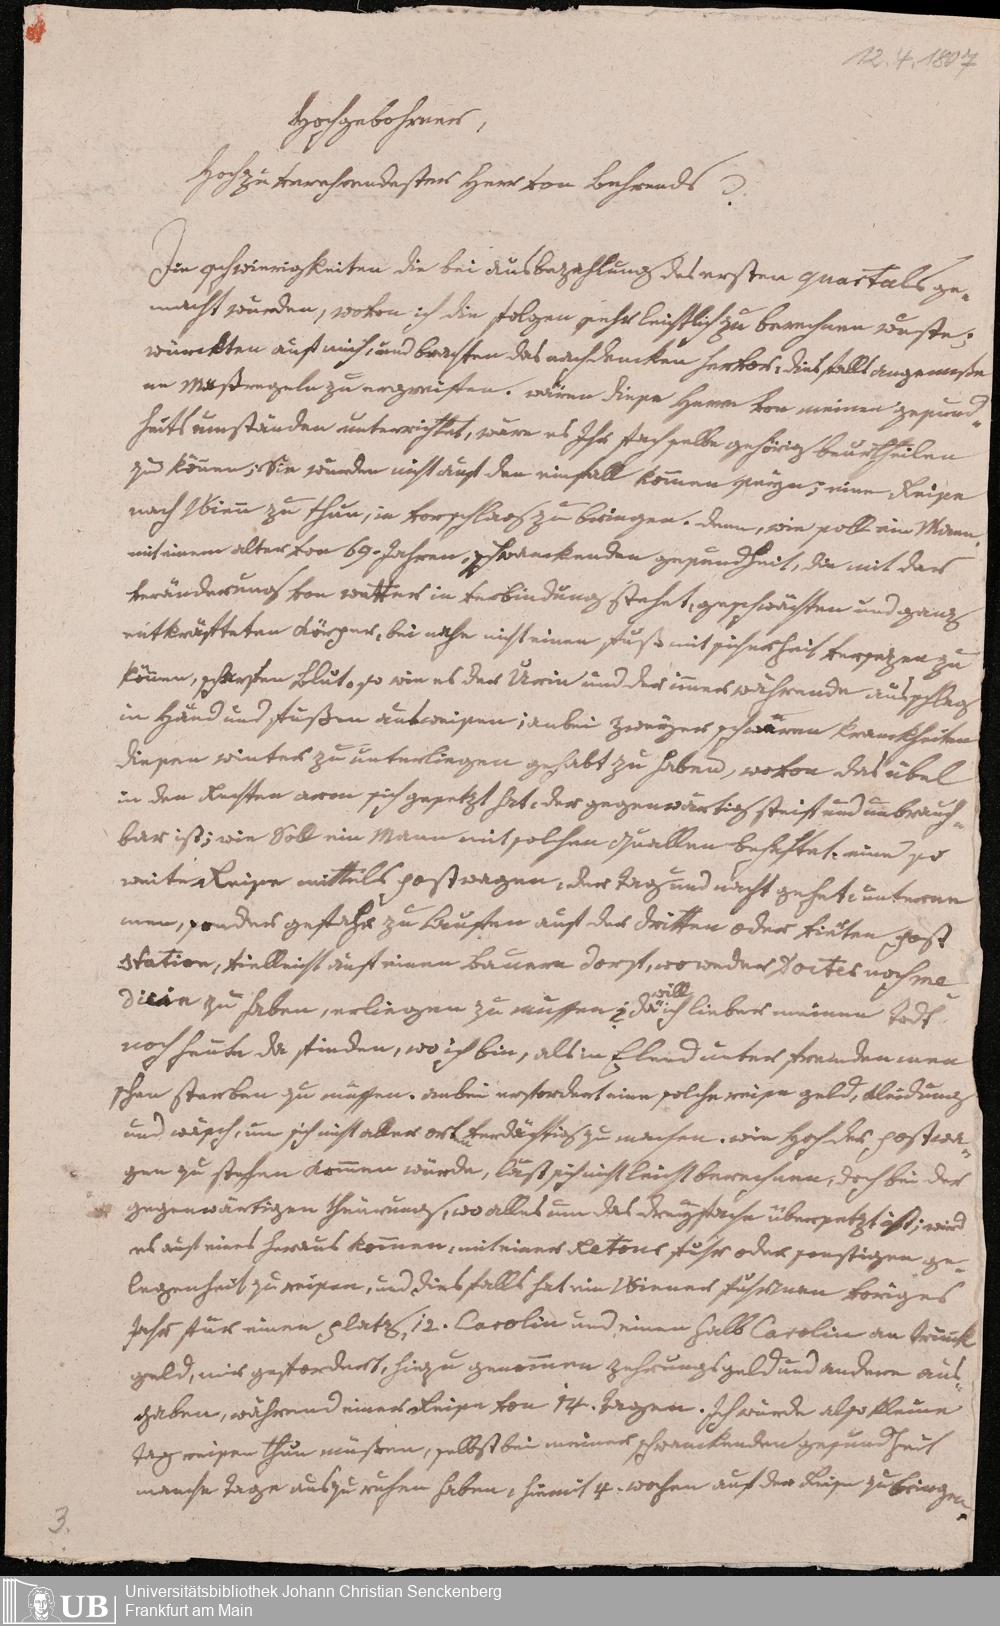 12.4.1807
Hochgebohrner,
Hochzu verehrendester Herr von Behrends
Die schwierigkeiten die bei ausbezahlung des ersten quartals ge-
macht wurden, wovon ich die folgen sehr leichtlich zu berechnen wuste;
würckten auf mich, und brachten das nachdencken hervor, diesfalls angemeße
ne Maßregeln zu ergreiffen. wären diese Herrn von meinen gesund-
heits umständen unterrichtet, wäre es Ihr fach selbe gehörig beurtheilen
zu können; Sie wurden nicht auf den einfall kommen seyn; eine Reise
nach Wien zu thun, in vorschlag zu bringen. denn, wie soll ein Mann,
mit einem alter von 69. Jahren, schwanckenden gesundheit, da mit der
veränderung von wetter in verbindung stehet, geschwächten und ganz
entkräfteten Körper, bei nahe nicht einen fuß mit sicherheit versezen zu
können, scharfen Blut, so wie es der Urin und der immer währende ausschlag
in Händ und füßen ausweisen; anbei zweyer schwären Kranckheiten
diesen winter zu unterliegen gehabt zu haben, wovon das übel
in den Rechten arm sich gesetzt hat, der gegenwärtig steif und unbrauch-
bar ist; wie Soll ein Mann mit solchen Quallen behaftet, eine so
weite Reise mittels postwagen, der tag und nacht gehet, unterne
men, sonder gefahr zu lauffen auf der dritten oder vierten post
station, vielleicht auf einen Bauern dorf, wo weder Doctor noch me
dicin zu haben, erliegen zu müssen; da will ich lieber meinen Todt
noch heute da finden, wo ich bin, als in Elend unter fremden men
schen sterben zu müssen. anbei erfordert eine solche reise geld, kleidung
und wäsch, um sich nicht aller ort verdächtig zu machen. wie hoch der postwa-
gen zu stehen kommen würde, läst sich nicht leicht berechnen, doch bei der
gegenwärtigen theürung, wo alles um das dreyfache übersetzt ist; wird
es auf eines heraus kommen, mit einer Retour fuhr oder sonstigen ge-
legenheit zu reisen, und diesfalls hat ein Wiener fuhrman voriges
Jahr für einen platz, 12. Carolin und einen halb Carolin an trinck
geld, mir gefordert, hiezu genommen zehrungsgeld und andere aus-
gaben, während einer Reise von 14. tagen. Ich würde also kleine
tag reisen thun müßen, selbst bei meiner schwanckenden gesundheit
manche tage aus zu ruhen haben, hiemit 4. wochen auf der Reise zubringen.
3.
UB
Universitätsbibliothek Johann Christian Senckenberg
Frankfurt am Main